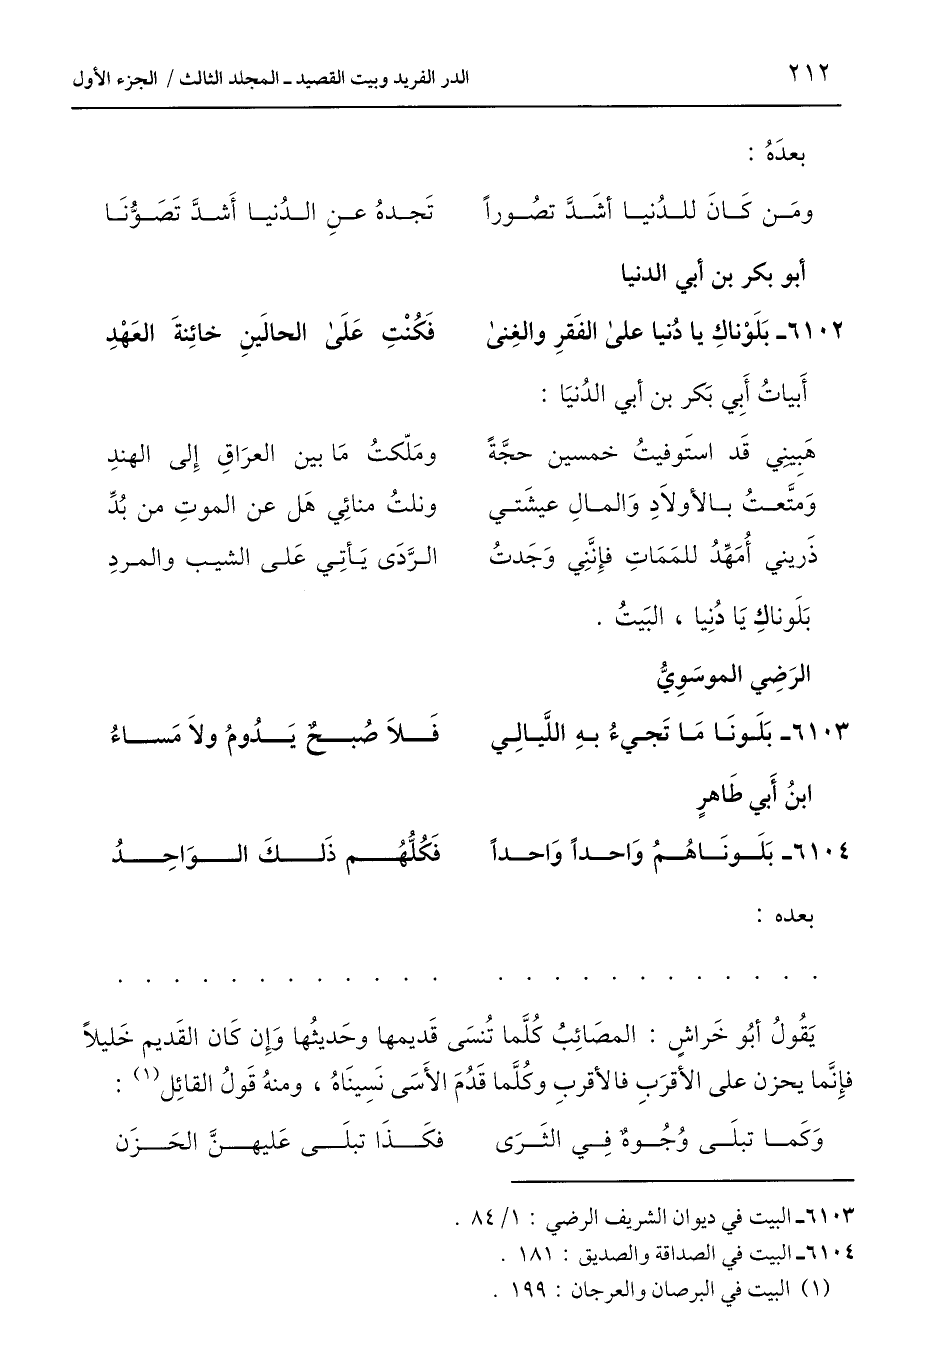 ٢١٢ الدر الفريد وبيت القصيد ـ المجلد الثالث / الجزء الأول
بعدَهُ :
ومَن كَانَ للدُنيا أشَدَّ تصُوراً تَجدهُ عنِ الدُنيا أَشدَّ تَصَوُّنَا
أبو بكر بن أبي الدنيا
٦١٠٢ـ بَلَوْناكِ يا دُنيا علىٰ الفَقرِ والغِنىٰ فَكُنْتِ عَلَىٰ الحالَينِ خائِنةَ العَهْدِ
أَبياتُ أَبِي بَكر بن أبي الدُنيَا :
هَبِينِي قَد استَوفيتُ خمسين حجَّةً ومَلّكتُ مَا بين العرَاقِ إِلى الهندِ
وَمتَّعتُ بالأولاَدِ وَالمالِ عيشَتي ونلتُ منائِي هَل عن الموتِ من بُدِّ
ذَريني أُمَهِّدُ للمَمَاتِ فإنَّنِي وَجَدتُ الرَّدَى يَأتِي عَلى الشيب والمردِ
بَلَوناكِ يَا دُنِيا ، البَيتُ .
الرَضِي الموسَوِيُّ
٦١٠٣ـ بَلَونَا مَا تَجيءُ بهِ اللَّيالِي فَلاَ صُبحٌ يَدُومُ ولاَ مَساءُ
ابنُ أَبي طَاهرٍ
٦١٠٤ـ بَلَونَاهُمُ وَاحداً وَاحداً فَكُلُّهُم ذَلكَ الوَاحِدُ
بعده :
. . . . . . . . . . . . . . . . . . . . . . . .
يَقُولُ أَبُو خَراشٍ : المصَائِبُ كُلَّما تُنسَى قَديمها وحَديثُها وَإِن كَان القَديم خَليلاً
فإِنَّما يحزن على الأقرَبِ فالأقربِ وكُلَّما قَدُمَ الأسَى نَسِينَاهُ ، ومنهُ قَولُ القائِل(١) :
وَكَما تبلَى وُجُوهٌ فِي الثَرَى فكَذَا تبلَى عَليهنَّ الحَزَن
٦١٠٣ـ البيت في ديوان الشريف الرضي : ١/ ٨٤ .
٦١٠٤ـ البيت في الصداقة والصديق : ١٨١ .
(١) البيت في البرصان والعرجان : ١٩٩ .